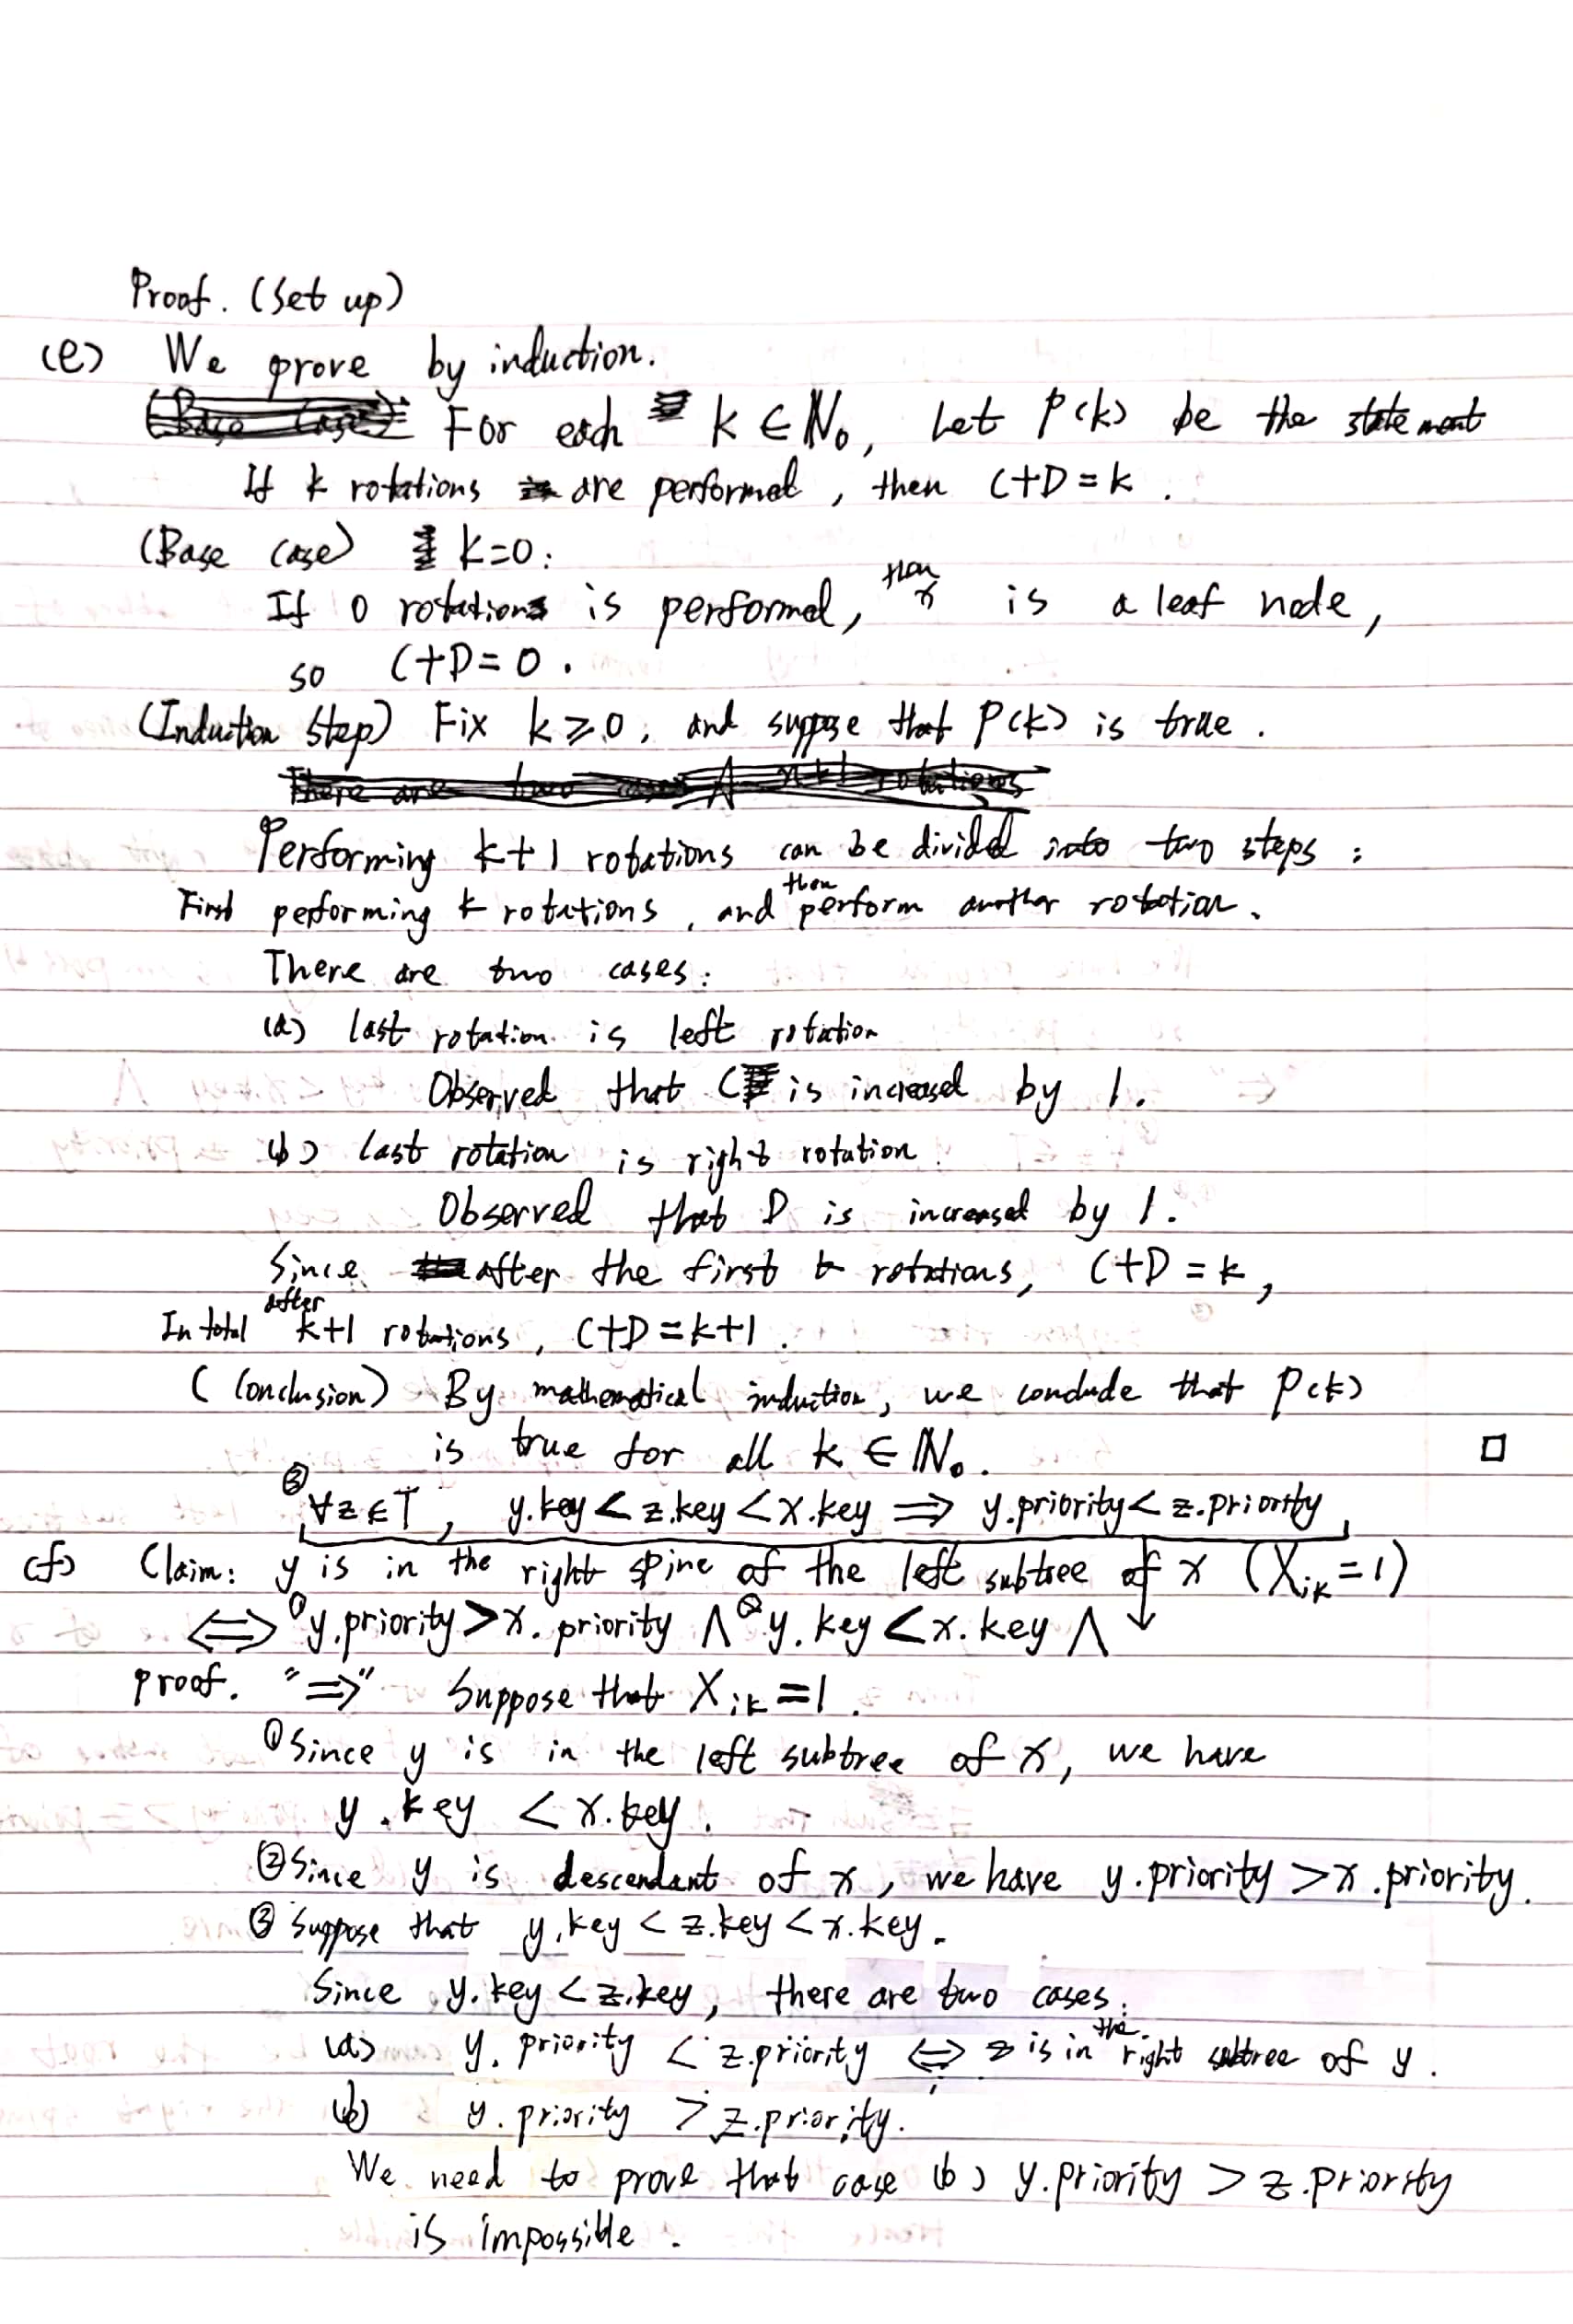 Proof. (Set up)
(e) We prove by induction.
For each k ∈ ℕ₀, Let P(k) be the statement
If k rotations are performed, then C+D=k.
(Base case) k=0:
If 0 rotations is performed, then x is a leaf node,
so C+D=0.
(Induction Step) Fix k≥0, and suppose that P(k) is true.
Performing k+1 rotations can be divided into two steps:
First performing k rotations, and then perform another rotation.
There are two cases:
(a) last rotation is left rotation
Observed that C is increased by 1.
(b) last rotation is right rotation
Observed that D is increased by 1.
Since after the first k rotations, C+D=k,
In total after k+1 rotations, C+D=k+1.
(Conclusion) By mathematical induction, we conclude that P(k)
is true for all k ∈ ℕ₀. □
③ ∀z∈T, y.key<z.key<x.key ⇒ y.priority<z.priority
(f) Claim: y is in the right spine of the left subtree of x (Xᵢₖ=1)
⇔ ① y.priority>x.priority ∧ ② y.key<x.key ∧ ↓
proof. "⇒" Suppose that Xᵢₖ=1.
① Since y is in the left subtree of x, we have
y.key < x.key.
② Since y is descendant of x, we have y.priority>x.priority.
③ Suppose that y.key<z.key<x.key.
Since y.key<z.key, there are two cases:
(a) y.priority < z.priority ⇔ z is in the right subtree of y.
(b) y.priority > z.priority.
We need to prove that case (b) y.priority > z.priority
is impossible.